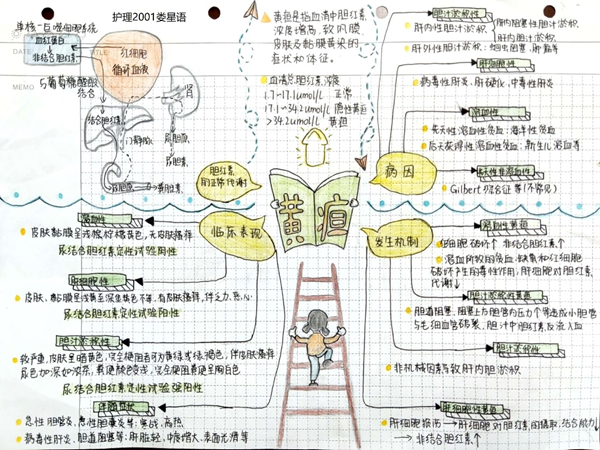 护理2001娄星语
单核-巨噬细胞系统
血红蛋白
非结合胆红素
红细胞
循环血液
与葡萄糖醛酸
结合
结合胆红素
门静脉
肾
尿胆原
尿胆素
粪胆素
胆红素
的正常代谢
黄疸是指血清中胆红素
浓度增高,致巩膜
皮肤及黏膜黄染的
症状和体征。
血清总胆红素浓度
1.7-17.1umol/L 正常
17.1-34.2umol/L 隐性黄疸
>34.2umol/L 黄疸
黄疸
病因
胆汁淤积性
肝内性胆汁淤积
肝内阻塞性胆汁淤积
肝内胆汁淤积
肝外性胆汁淤积:
肝细胞性
病毒性肝炎、肝硬化、中毒性肝炎
溶血性
先天性溶血性贫血:海洋性贫血
后天获得性溶血性贫血:新生儿溶血等
先天性非溶血性
Gilbert综合征等(不常见)
临床表现
溶血性
皮肤黏膜呈浅柠檬黄色,无皮肤瘙痒
尿结合胆红素定性试验阴性
肝细胞性
皮肤、黏膜呈浅黄至深金黄色不等,有皮肤瘙痒,伴乏力、恶心
尿结合胆红素定性试验阳性
胆汁淤积性
较严重,皮肤呈暗黄色,完全梗阻者可为黄绿或绿褐色,伴皮肤瘙痒
尿色加深如浓茶,粪便颜色变浅,完全梗阻粪便呈陶白色
尿结合胆红素定性试验强阳性
伴随症状
急性胆管炎、急性胆囊炎等:寒战、高热
病毒性肝炎、胆道阻塞等:肝脏轻、中度增大、表面光滑等
发生机制
溶血性黄疸
红细胞破坏↑ 非结合胆红素↑
溶血所致的贫血、缺氧和红细胞
破坏产生的毒性作用,肝细胞对胆红素
代谢↓
胆汁淤积性黄疸
胆道阻塞,阻塞上方胆管内压力个等造成小胆管
与毛细胆管破裂,胆汁中胆红素反流入血
胆汁淤积性
非机械因素导致肝内胆汁淤积
肝细胞性黄疸
肝细胞损伤→肝细胞对胆红素的摄取、结合能力↓
→非结合胆红素↑